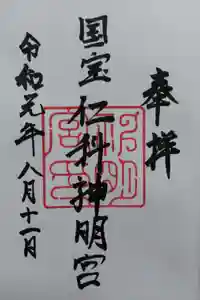 奉拝
国宝仁科神明宮
令和元年八月十一日